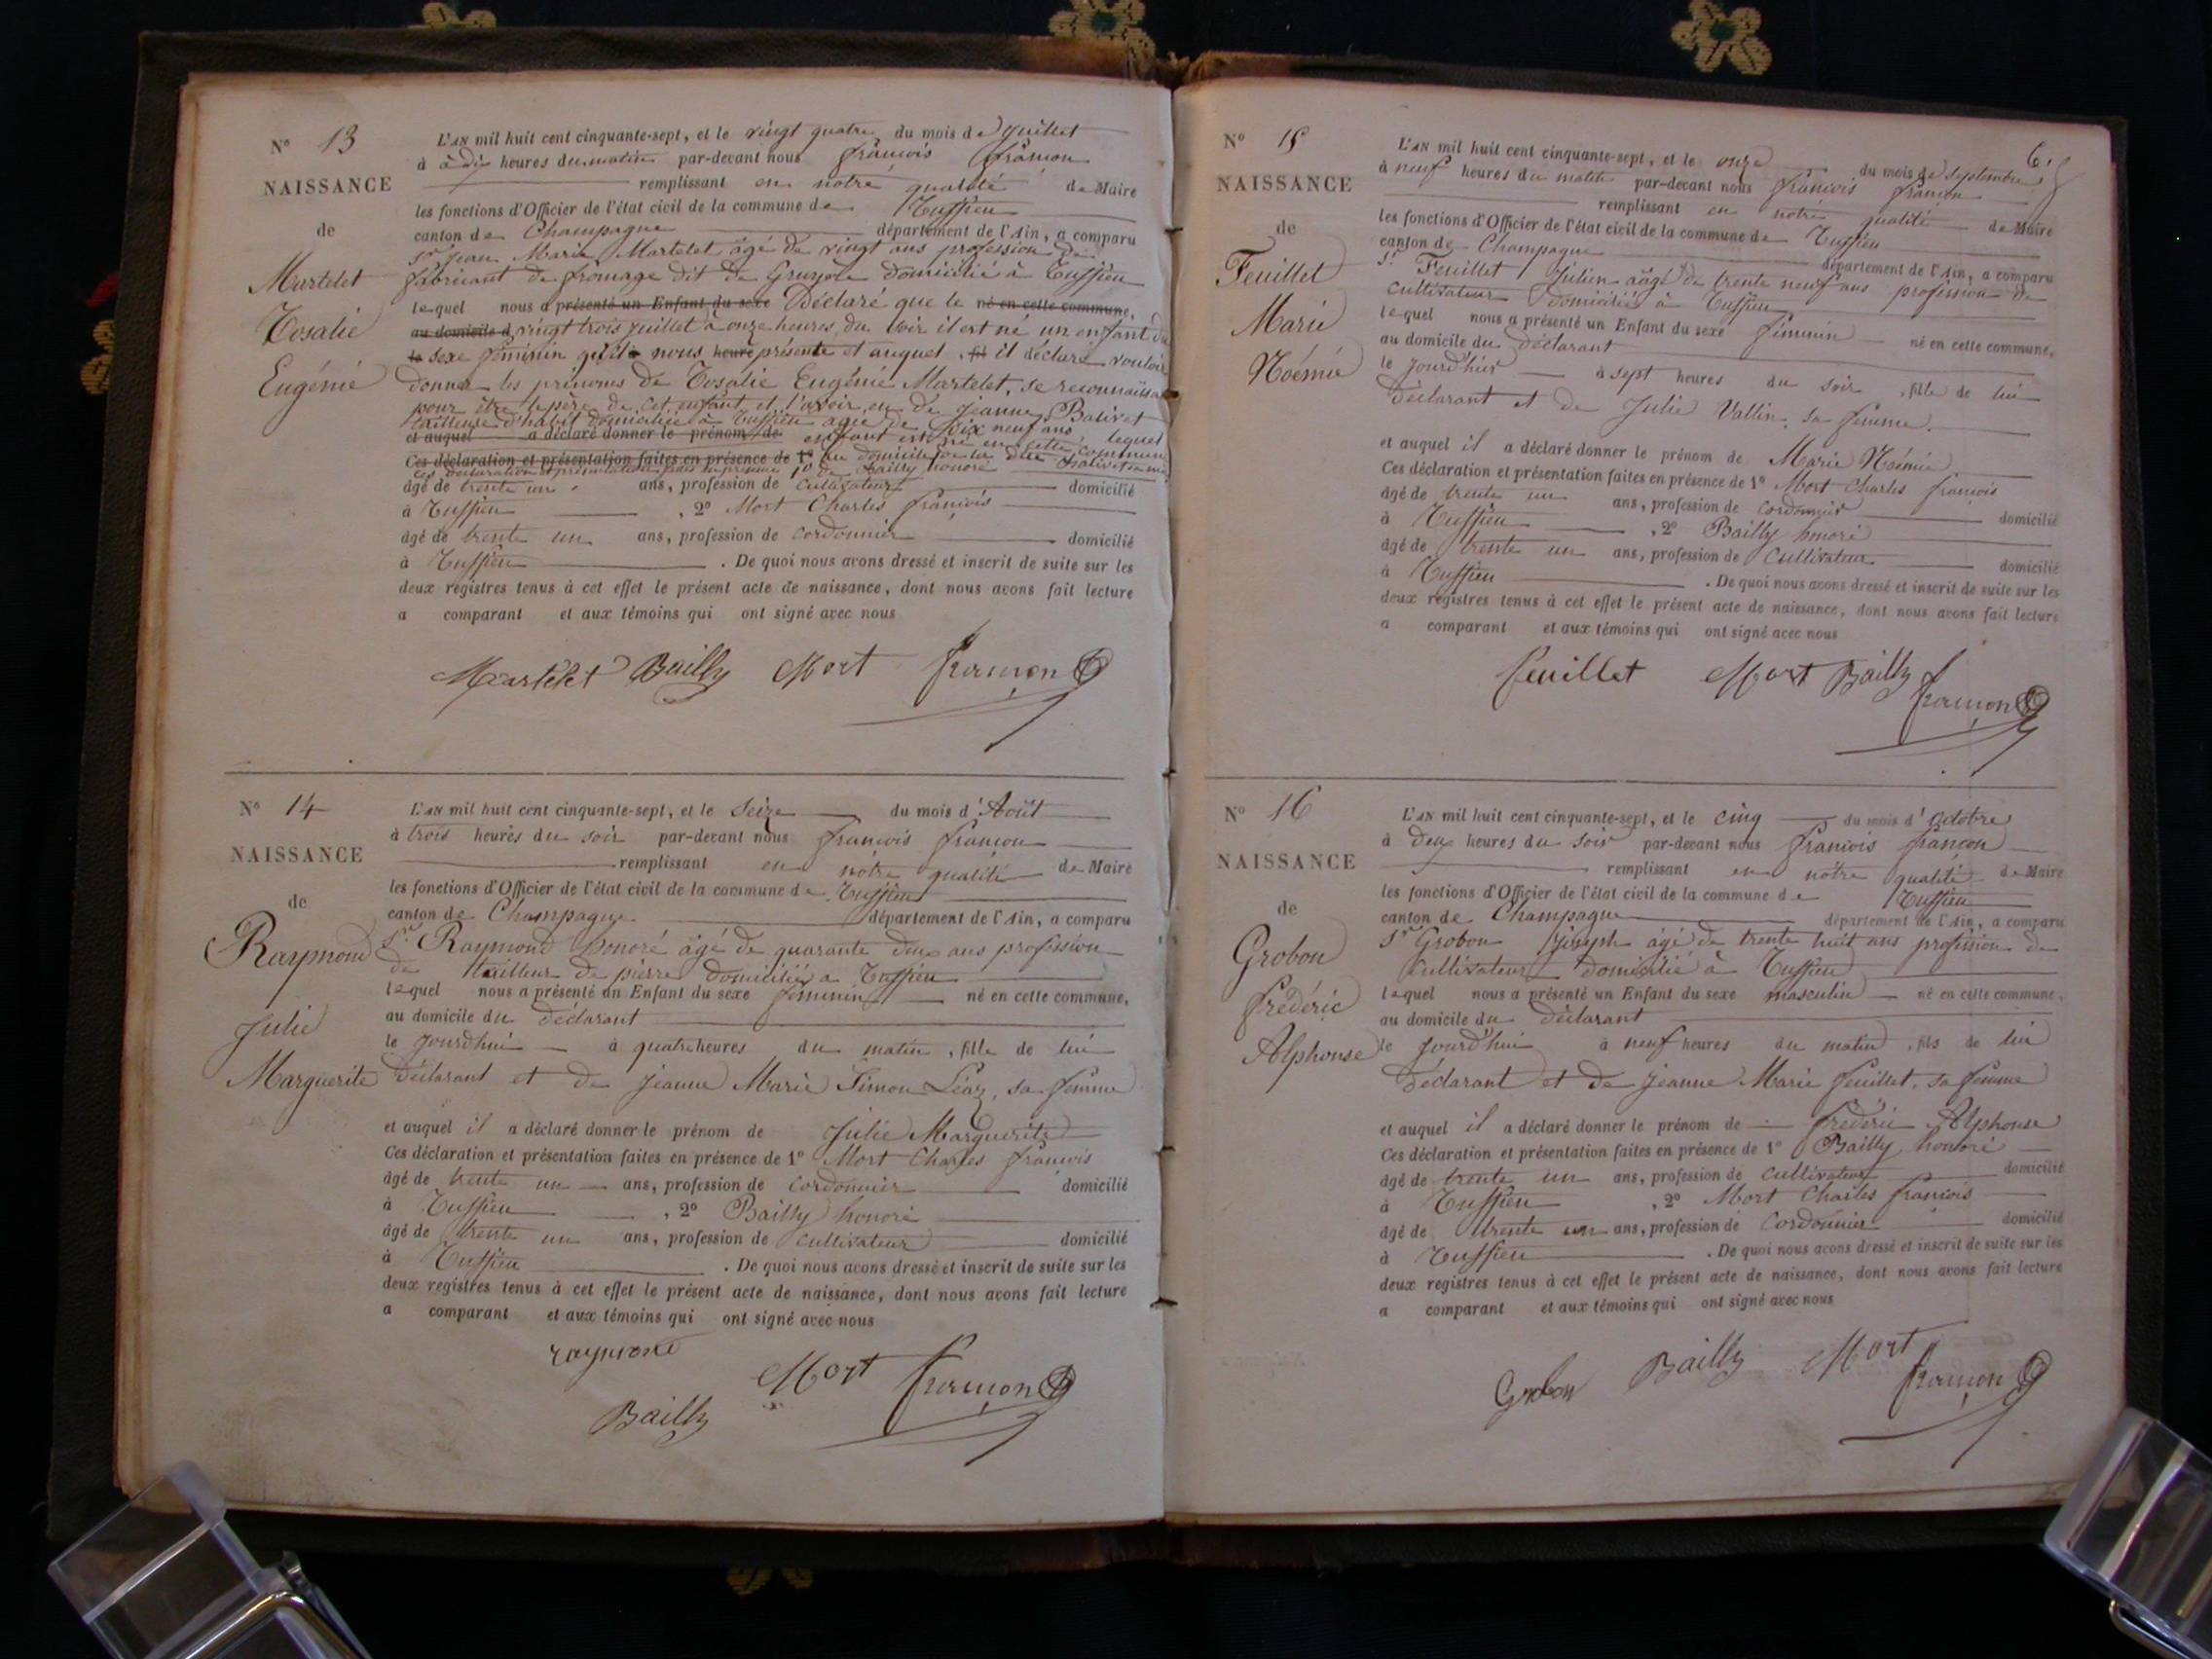 N° 13
NAISSANCE
de
Martelet
Rosalie
Eugénie
L'AN mil huit cent cinquante-sept, et le vingt quatre du mois de juillet
à à dix heures du matin par-devant nous françois françon
remplissant en notre qualité de Maire
les fonctions d'Officier de l'état civil de la commune de Ruffieu
canton de Champagne département de l'Ain, a comparu
Sr Jean Marie Martelet âgé de vingt ans profession de
fabricant de fromage dit de Gruyère domicilié à Ruffieu
lequel nous a présenté un Enfant du sexe Déclaré que le né en cette commune,
au domicile d vingt trois juillet à onze heures du soir il est né un enfant du
le sexe féminin qu'il nous heure présente et auquel fil il déclare vouloir
donner les prénoms de Rosalie Eugénie Martelet, se reconnaissant
pour être le père de cet enfant et l'avoir eu de jeanne Balivet
tailleuse d'habit domiciliée à Ruffieu agée de dix neuf ans, lequel
et auquel a déclaré donner le prénom de enfant est né en cette commune
Ces déclaration et présentation faites en présence de 1° au domicile de la dite Balivet
1° de Bailly honoré
âgé de trente un ans, profession de cultivateur domicilié
à Ruffieu , 2° Mort Charles françois
âgé de trente un ans, profession de cordonnier domicilié
à Ruffieu . De quoi nous avons dressé et inscrit de suite sur les
deux registres tenus à cet effet le présent acte de naissance, dont nous avons fait lecture
a comparant et aux témoins qui ont signé avec nous
Martelet Bailly Mort françon
N° 14
NAISSANCE
de
Raymond
Julie
Marguerite
L'AN mil huit cent cinquante-sept, et le Seize du mois d'Août
à trois heures du soir par-devant nous françois françon
remplissant en notre qualité de Maire
les fonctions d'Officier de l'état civil de la commune de Ruffieu
canton de Champagne département de l'Ain, a comparu
Sr Raymond honoré âgé de quarante deux ans profession
de tailleur de pierre domicilié a Ruffieu
lequel nous a présenté un Enfant du sexe féminin né en cette commune,
au domicile du déclarant
le jourdhui à quatre heures du matin , fille de lui
déclarant et de jeanne Marie Simon Léaz, sa femme
et auquel il a déclaré donner le prénom de Julie Marguerite
Ces déclaration et présentation faites en présence de 1° Mort Charles françois
âgé de trente un ans, profession de cordonnier domicilié
à Ruffieu , 2° Bailly honoré
âgé de trente un ans, profession de cultivateur domicilié
à Ruffieu . De quoi nous avons dressé et inscrit de suite sur les
deux registres tenus à cet effet le présent acte de naissance, dont nous avons fait lecture
a comparant et aux témoins qui ont signé avec nous
raymond
Mort françon
Bailly
6
N° 15
NAISSANCE
de
Feuillet
Marie
Noémie
L'AN mil huit cent cinquante-sept, et le onze du mois de Septembre
à neuf heures du matin par-devant nous françois françon
remplissant en notre qualité de Maire
les fonctions d'Officier de l'état civil de la commune de Ruffieu
canton de Champagne département de l'Ain, a comparu
Sr Feuillet Julien âgé de trente neuf ans profession de
cultivateur domicilié à Ruffieu
lequel nous a présenté un Enfant du sexe féminin né en cette commune,
au domicile du déclarant
le jourd'hier à sept heures du soir , fille de lui
déclarant et de Julie Vallin, sa femme.
et auquel il a déclaré donner le prénom de Marie Noémie
Ces déclaration et présentation faites en présence de 1° Mort Charles françois
âgé de trente un ans, profession de cordonnier domicilié
à Ruffieu , 2° Bailly honoré
âgé de trente un ans, profession de Cultivateur domicilié
à Ruffieu . De quoi nous avons dressé et inscrit de suite sur les
deux registres tenus à cet effet le présent acte de naissance, dont nous avons fait lecture
a comparant et aux témoins qui ont signé avec nous
feuillet Mort Bailly
françon
N° 16
NAISSANCE
de
Grobon
frédéric
Alphonse
L'AN mil huit cent cinquante-sept, et le cinq du mois d'Octobre
à Deux heures du soir par-devant nous françois françon
remplissant en nôtre qualité de Maire
les fonctions d'Officier de l'état civil de la commune de Ruffieu
canton de Champagne département de l'Ain, a comparu
Sr Grobon Joseph âgé de trente huit ans profession de
cultivateur domicilié à Ruffieu
lequel nous a présenté un Enfant du sexe masculin né en cette commune,
au domicile du déclarant
le jourd'hui à neuf heures du matin , fils de lui
déclarant et de jeanne Marie feuillet, sa femme
et auquel il a déclaré donner le prénom de frédéric Alphonse
Ces déclaration et présentation faites en présence de 1° Bailly honoré
âgé de trente un ans, profession de cultivateur domicilié
à Ruffieu , 2° Mort Charles françois
âgé de trente un ans, profession de Cordonnier domicilié
à Ruffieu . De quoi nous avons dressé et inscrit de suite sur les
deux registres tenus à cet effet le présent acte de naissance, dont nous avons fait lecture
a comparant et aux témoins qui ont signé avec nous
Grobon Bailly Mort
françon